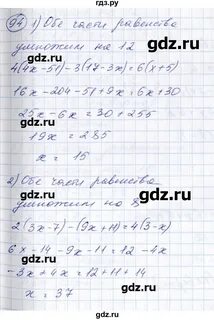 94 1) Обе части равенства
умножим на 12
4(4x-51)-3(17-3x)=6(x+5)
16x-204-51+9x=6x+30
25x-6x=30+255
19x=285
x=15
2) Обе части равенства
умножим на 8
2(3x-7)-(9x+11)=4(3-x)
6x-14-9x-11=12-4x
-3x+4x=12+11+14
x=37